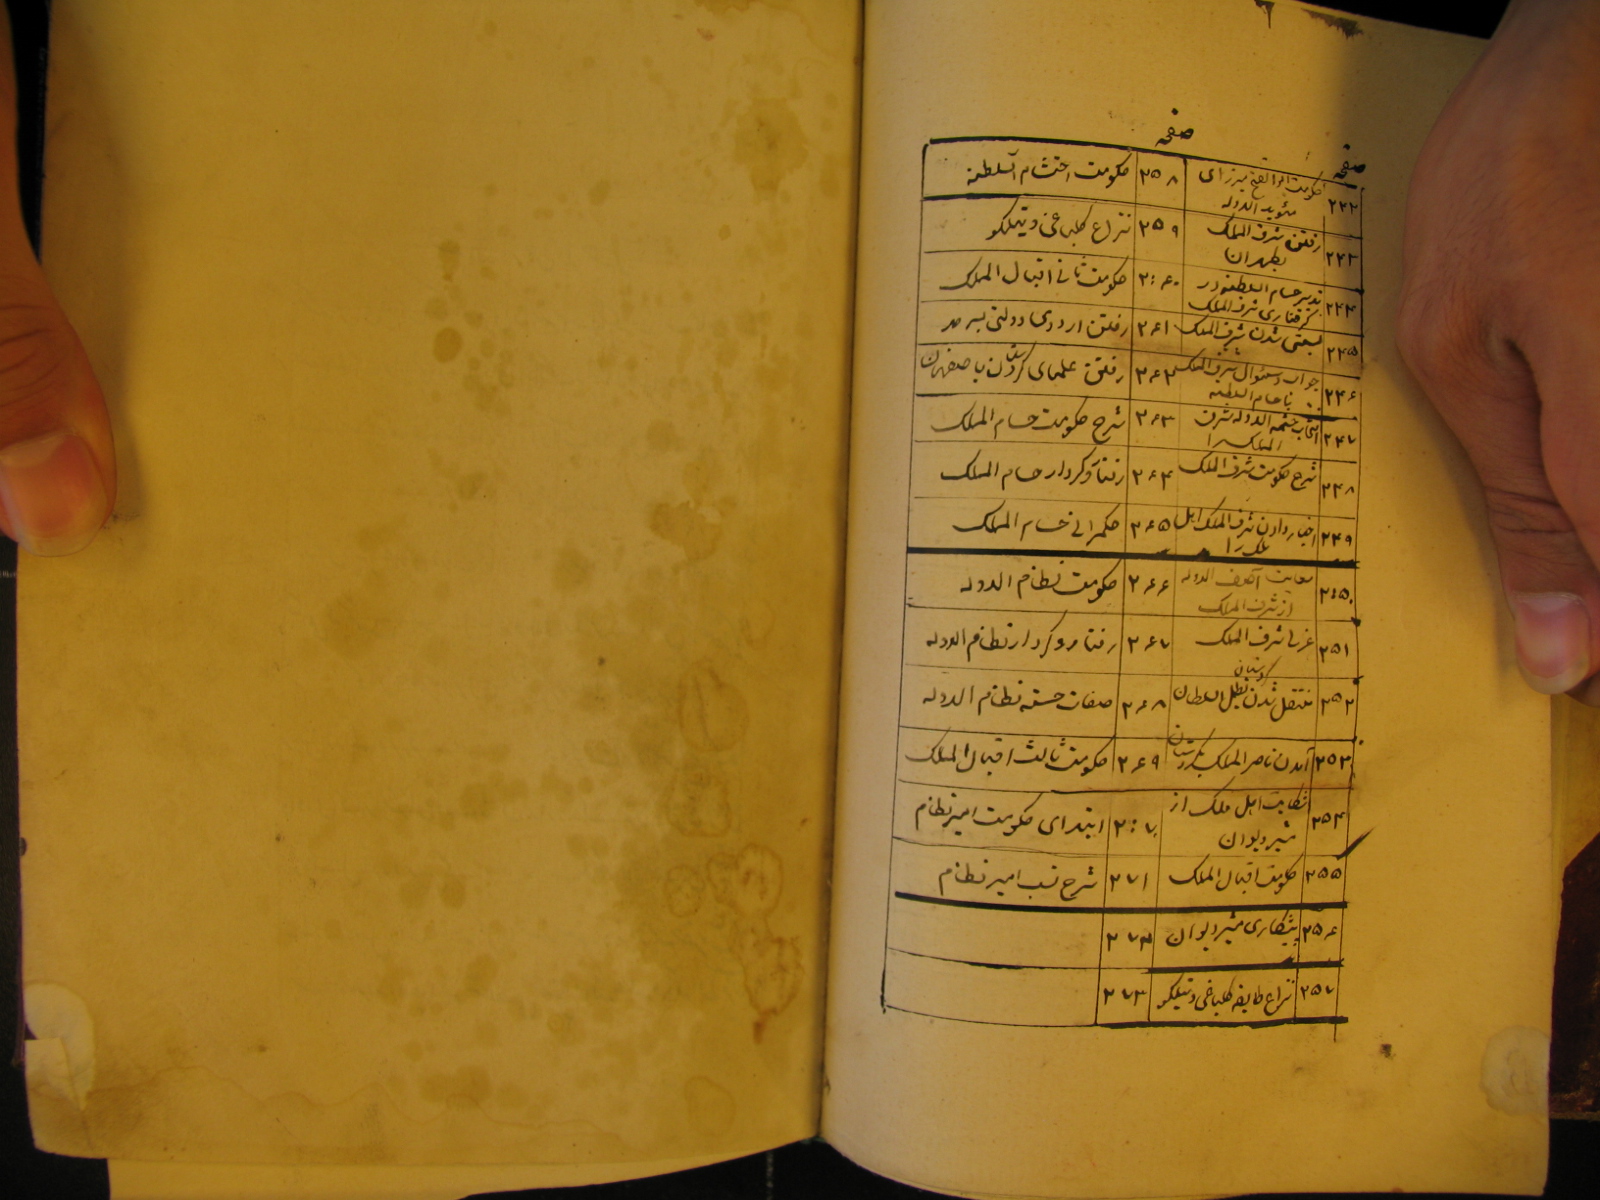 صفحه
صفحه
۲۴۲ حکومت ابوالفتح میرزای
مؤید الدوله
۲۵۸ حکومت احتشام السلطنه
۲۴۳ رفتن شرف الملک
بطهران
۲۵۹ نزاع گلباغی و تیلکو
۲۴۴ تدبیر حسام السلطنه در
گرفتاری شرف الملک
۲۶۰ حکومت ثانی اقبال الملک
۲۴۵ شدن شرف الملک
۲۶۱ رفتن اردوی دولتی بسرحد
۲۴۶ جواب و سئوال شرف الملک
با حسام السلطنه
۲۶۲ رفتن علمای کردستان باصفهان
۲۴۷ حشمه الدوله شرف
الملک را
۲۶۳ شرح حکومت حسام الملک
۲۴۸ شرح حکومت شرف الملک
۲۶۴ رفتار و کردار حسام الملک
۲۴۹ اختیار دادن شرف الملک اهل
ملک را
۲۶۵ حکمرانی حسام الملک
۲۵۰ آصف الدوله
از شرف الملک
۲۶۶ حکومت نظام الدوله
۲۵۱ عزل شرف الملک
۲۶۷ رفتار و کردار نظام الدوله
۲۵۲ منتقل شدن کردستان بظل السلطان
۲۶۸ صفات حسنه نظام الدوله
۲۵۳ آمدن ناصر الملک بکردستان
۲۶۹ حکومت ثالث اقبال الملک
۲۵۴ شکایت اهل ملک از
مشیر دیوان
۲۷۰ ابتدای حکومت امیر نظام
۲۵۵ حکومت اقبال الملک
۲۷۱ شرح نسب امیر نظام
۲۵۶ پیشکاری مشیر دیوان
۲۷۲
۲۵۷ نزاع طایفه گلباغی و تیلکو
۲۷۳